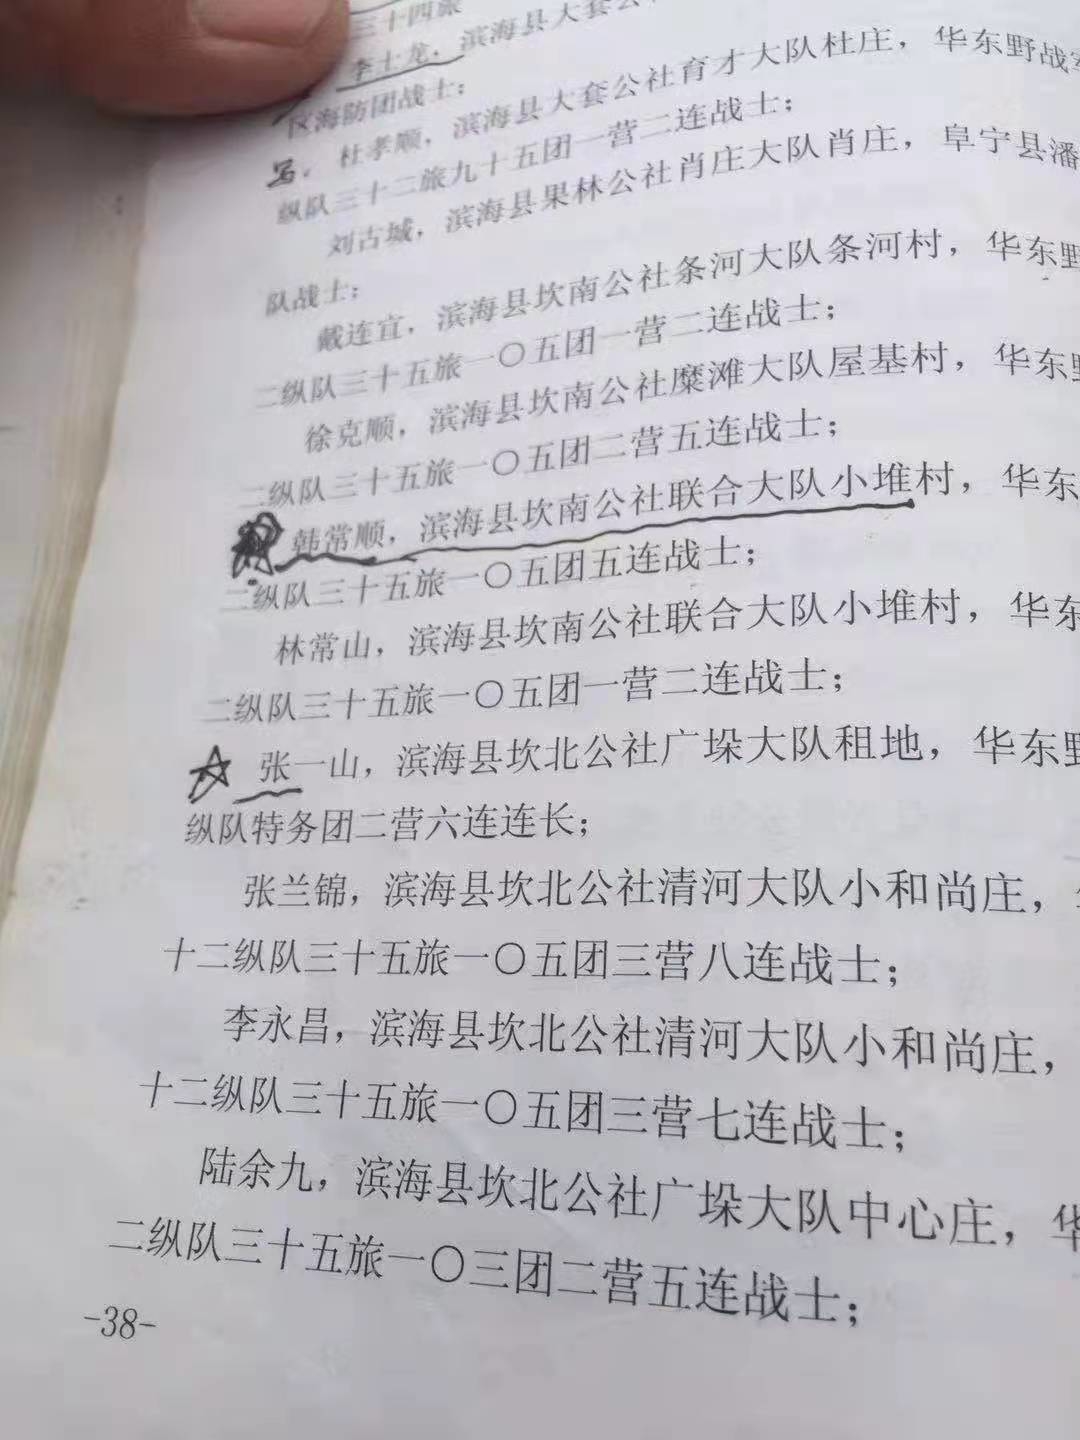 三十四旅
李士龙，滨海县大套公
区海防团战士；
写．杜孝顺，滨海县大套公社育才大队杜庄，华东野战
纵队三十二旅九十五团一营二连战士；
刘古城，滨海县果林公社肖庄大队肖庄，阜宁县潘
队战士；
戴连宜，滨海县坎南公社条河大队条河村，华东野
二纵队三十五旅一〇五团一营二连战士；
徐克顺，滨海县坎南公社糜滩大队屋基村，华东野
二纵队三十五旅一〇五团二营五连战士；
韩常顺，滨海县坎南公社联合大队小堆村，华东
二纵队三十五旅一〇五团五连战士；
林常山，滨海县坎南公社联合大队小堆村，华东
二纵队三十五旅一〇五团一营二连战士；
张一山，滨海县坎北公社广垛大队租地，华东野
纵队特务团二营六连连长；
张兰锦，滨海县坎北公社清河大队小和尚庄，
十二纵队三十五旅一〇五团三营八连战士；
李永昌，滨海县坎北公社清河大队小和尚庄，
十二纵队三十五旅一〇五团三营七连战士；
陆余九，滨海县坎北公社广垛大队中心庄，华
二纵队三十五旅一〇三团二营五连战士；
-38-